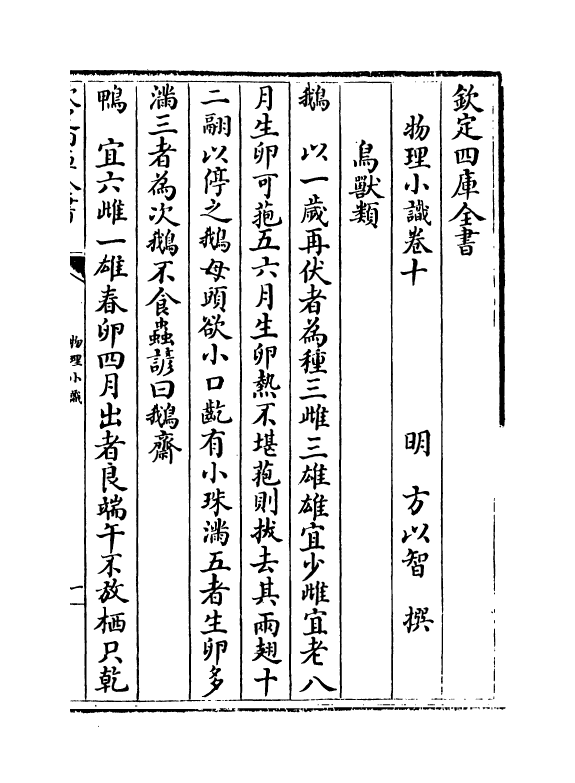 欽定四庫全書
物理小識卷十
明 方以智 撰
鳥獸類
鵝 以一歲再伏者為種三雌三雄雄宜少雌宜老八
月生卵可菢五六月生卵熱不堪菢則拔去其兩翅十
二翮以停之鵝母頭欲小口齕有小珠滿五者生卵多
滿三者為次鵝不食蟲諺曰鵝齋
鴨 宜六雌一雄春卵四月出者良端午不放栖只乾
物理小識
一